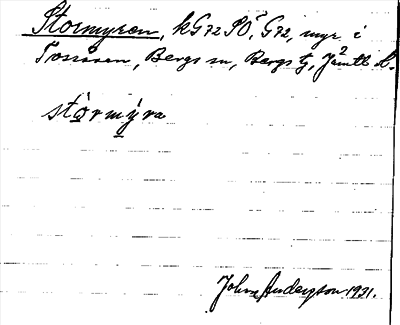 Stormyren, kG72SO, G72, myr i
Tossåsen, Bergs sn, Bergs tg, Jämtl. l.
stòrmýra
John Anderzon 1931.